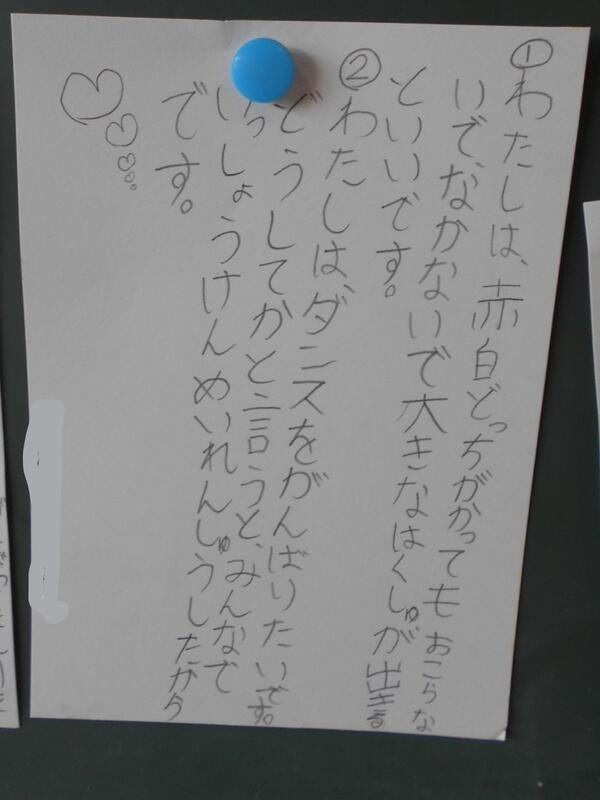 ①わたしは、赤白どっちがかってもおこらな
いで、なかないで大きなはくしゅが出きる
といいです。
②わたしは、ダンスをがんばりたいです。
どうしてかと言うと、みんなで
いっしょうけんめいれんしゅうしたから
です。